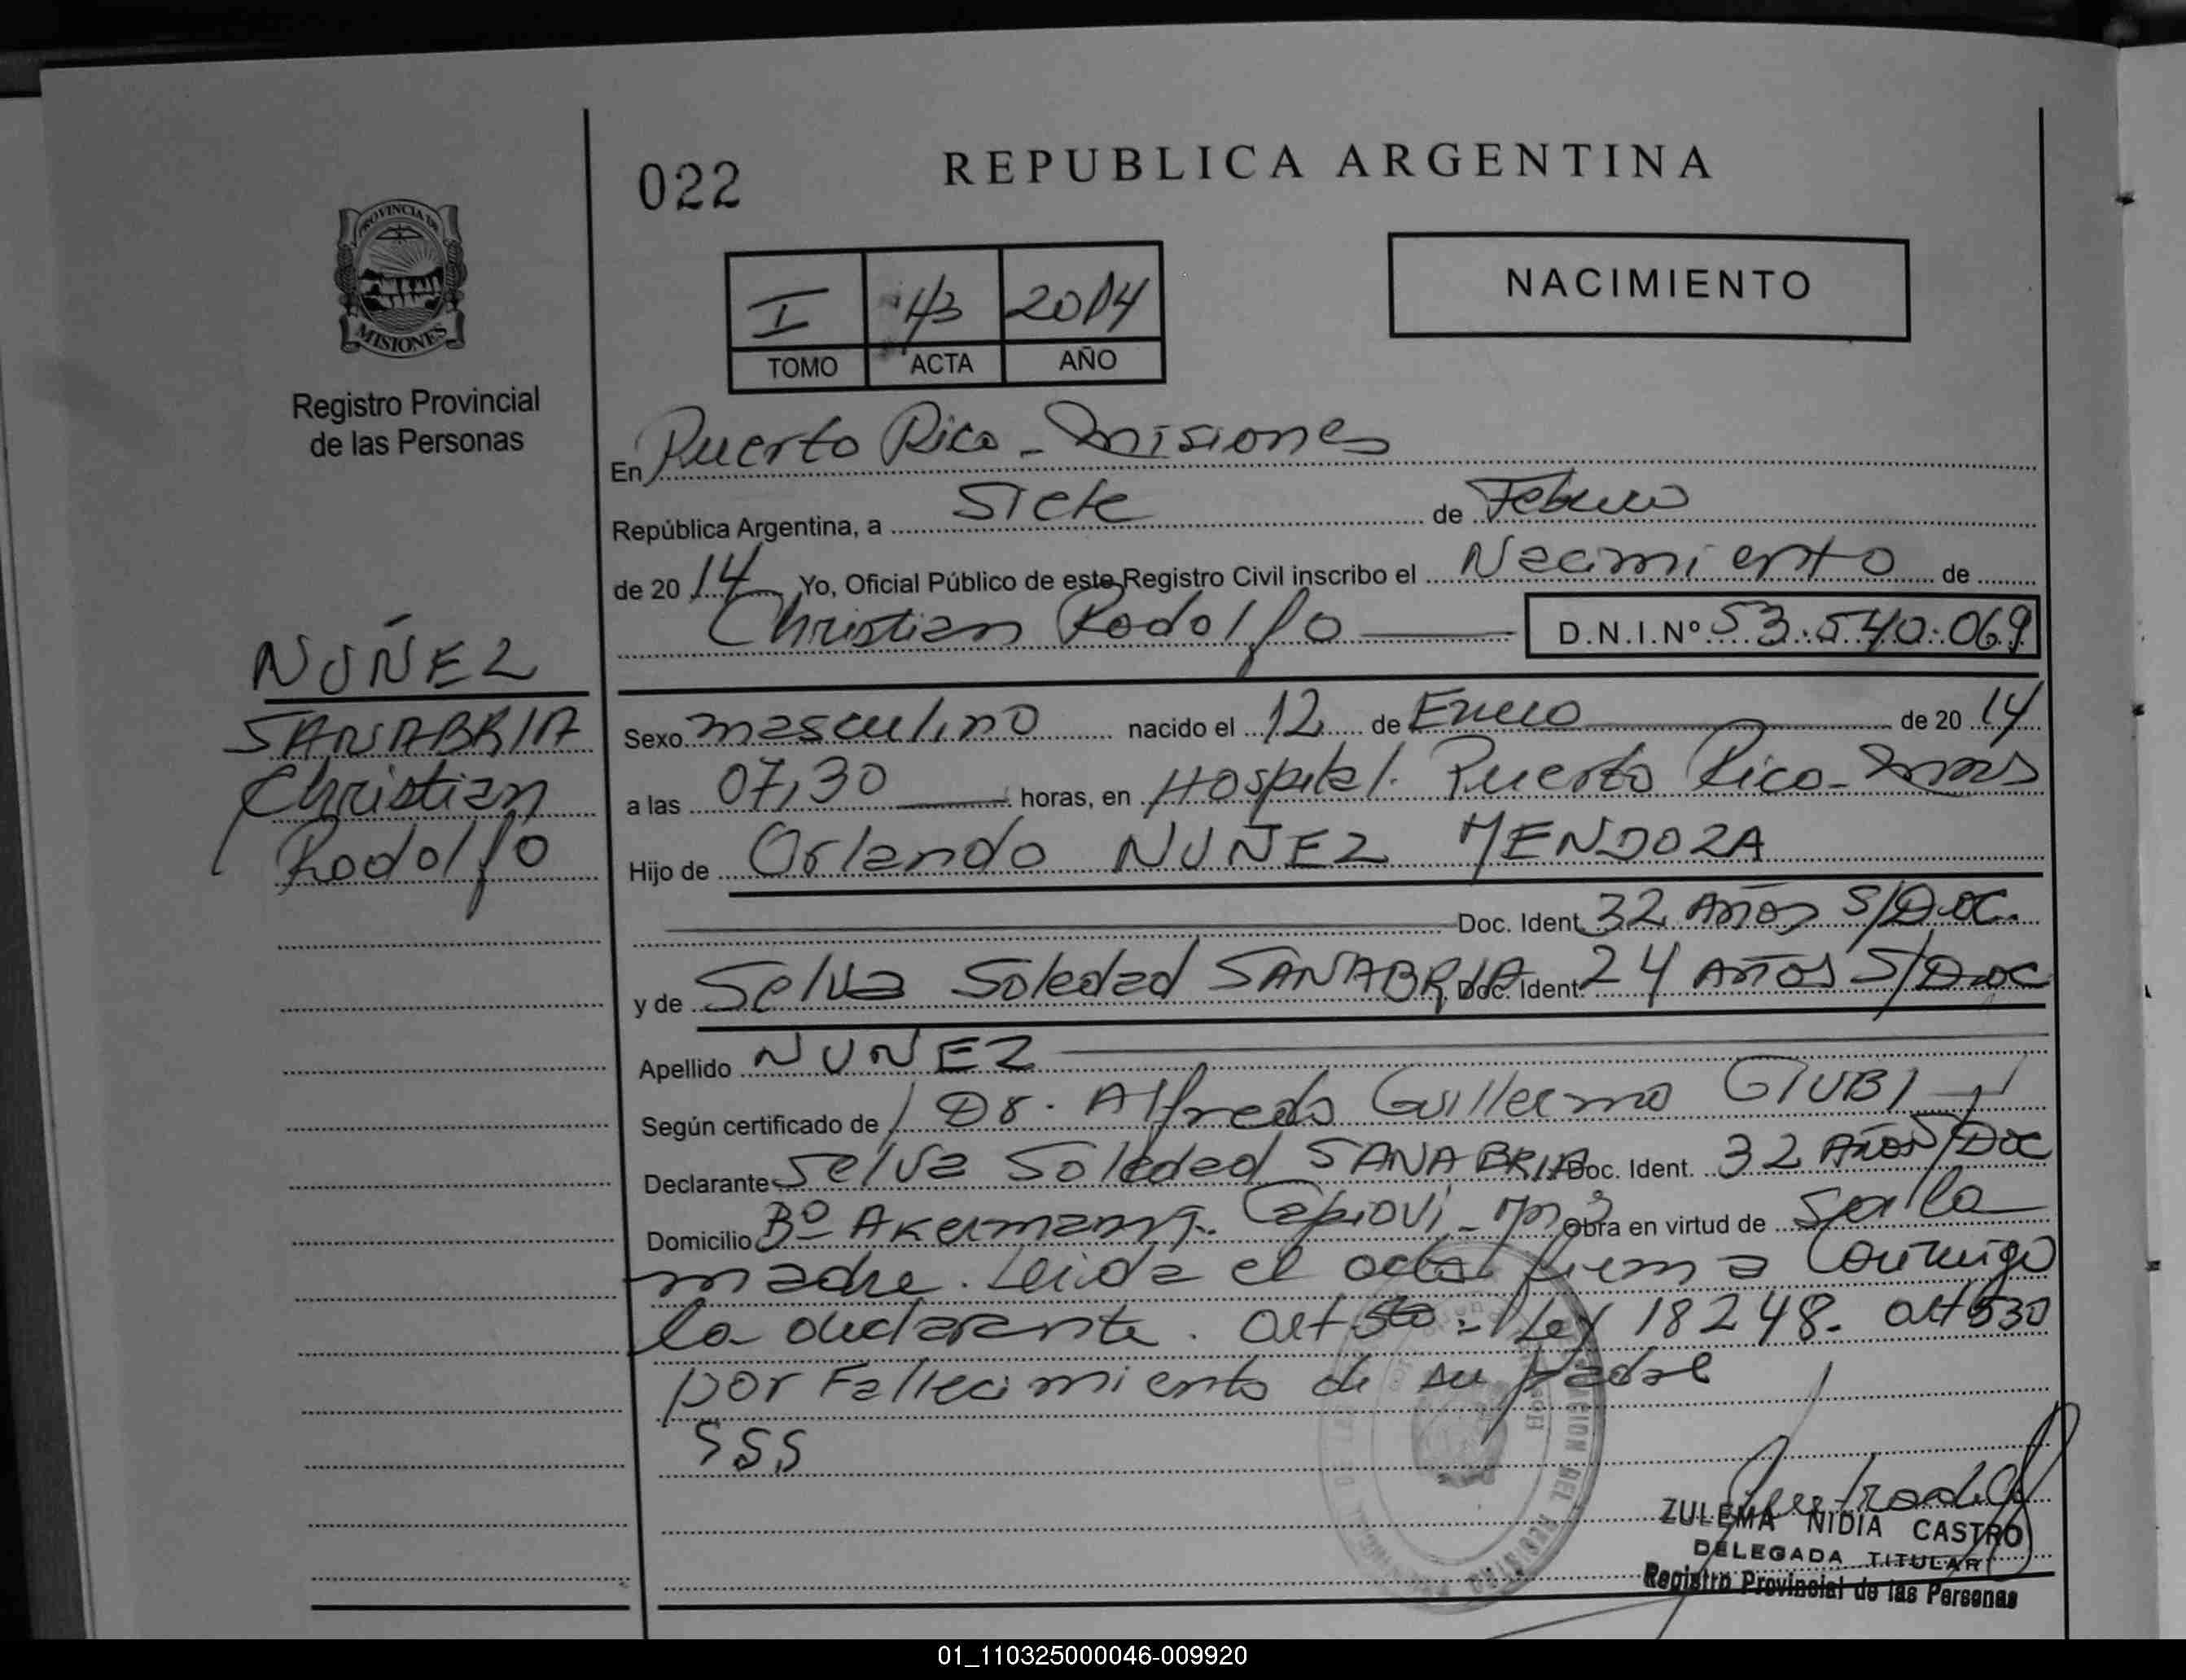 022
REPUBLICA ARGENTINA
PROVINCIA DE
MISIONES
Registro Provincial
de las Personas
I 43 2014
TOMO ACTA AÑO
NACIMIENTO
En Puerto Rico - Misiones
República Argentina, a Siete de Febrero
de 20 14 Yo, Oficial Público de este Registro Civil inscribo el Nacimiento de
Christian Rodolfo D.N.I.Nº 53.540.069
NUÑEZ
SANABRIA
Christian
Rodolfo
Sexo masculino nacido el 12 de Enero de 20 14
a las 07,30 horas, en Hospital. Puerto Rico - Mnes
Hijo de Orlando NUÑEZ MENDOZA
Doc. Ident. 32 Años S/Doc.
y de Selva Soledad SANABRIA Doc. Ident. 24 AÑOS S/Doc
Apellido NUÑEZ
Según certificado de Dr. Alfredo Guillermo GIUBI
Declarante Selva Soledad SANABRIA Doc. Ident. 32 Años S/Doc
Domicilio Bº Akermann. Capiovi - Mnes Obra en virtud de Ser la
madre. Leida el acta firma conmigo
la declarante. Art 5to - Ley 18248. Art
por Fallecimiento de su padre
SSS
ZULEMA NIDIA CASTRO
DELEGADA TITULAR
Registro Provincial de las Personas
01_110325000046-009920